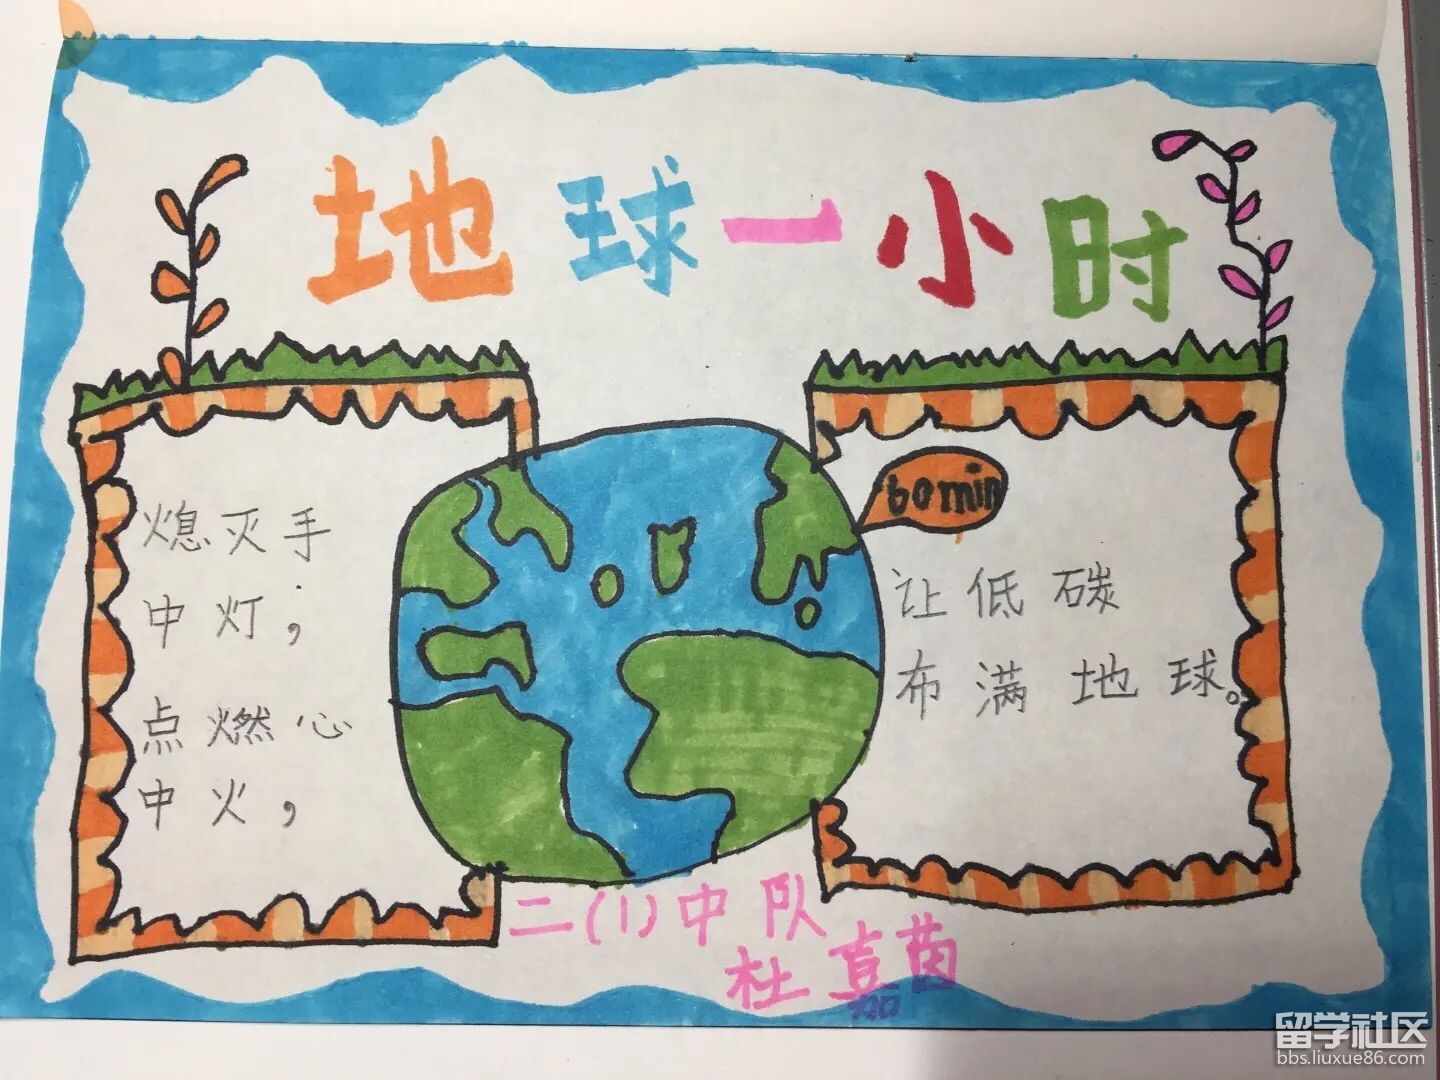 地球一小时
熄灭手
中灯；
点燃心
中火，
60min
让低碳
布满地球。
二(1)中队
杜嘉茵
留学社区
bbs.liuxue86.com